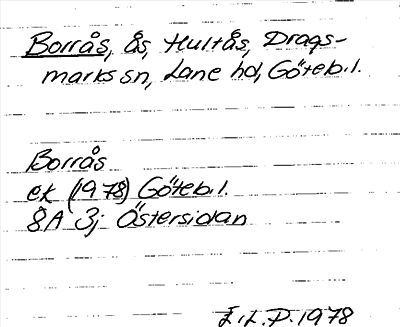 Borrås, ås, Hultås, Drags-
marks sn, Lane hd, Göteb.l.
Borrås
ek (1978) Göteb.l.
8A 3j Östersidan
E.L.P. 1978